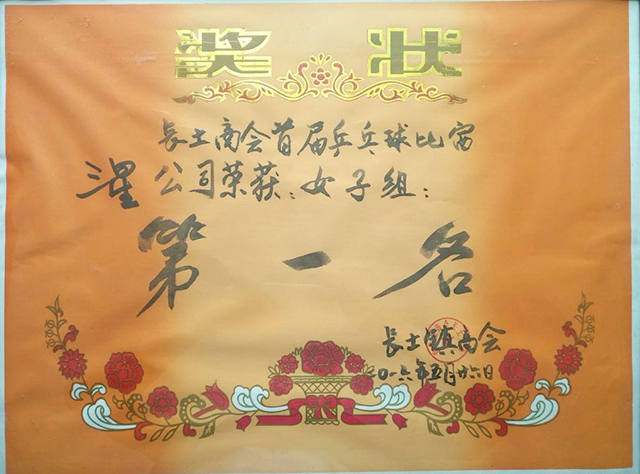 奖状
长士商会首届乒乓球比赛
三星公司荣获:女子组:
第一名
长士镇商会
二〇一六年五月廿六日